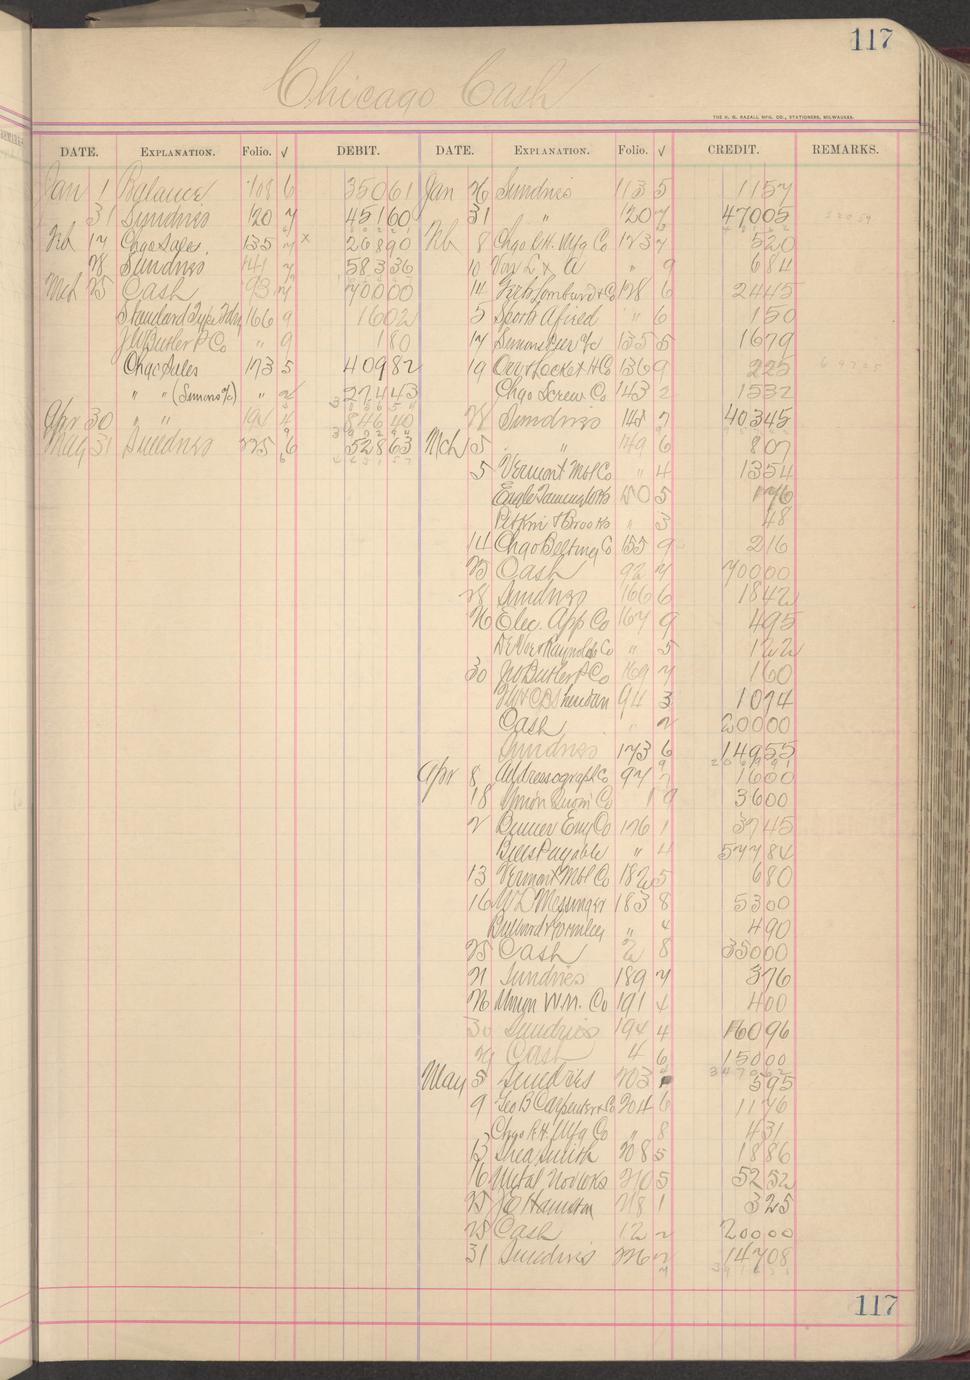 117
Chicago Cash
THE H. G. RAZALL MFG. CO., STATIONERS, MILWAUKEE.
DATE. EXPLANATION. Folio. √ DEBIT. DATE. EXPLANATION. Folio. √ CREDIT. REMARKS.
Jan 1 Balance 108 6 35061 Jan 26 Sundries 113 5 1157
31 Sundries 120 7 45160 31 " 120 7 47005
Feb 17 Chgo Sales 135 7 x 26890 Feb 8 Chgo R.H. Mfg Co 123 7 520
28 Sundries 141 7 58336 10 Von L & A " 9 684
Mch 25 Cash 93 7 70000 14 128 6 2445
Standard Type Fdry 166 9 1602 5 Sports Afield " 6 150
J W Butler P Co " 9 180 17 Simons 135 5 1679
Chgo Sales 173 5 40982 19 Orr & Locket H Co 136 9 225
" " (Simons a/c) " 2 27443 Chgo Screw Co 143 2 1532
Apr 30 " " 194 4 84640 28 Sundries 141 7 40345
May 31 Sundries 225 6 52863 Mch 5 " 149 6 807
5 Vermont Mbl Co " 4 1354
Eagle Tanning Wks 150 5 176
Pitkin & Brooks " 3 48
14 Chgo Belting Co 155 9 216
25 Cash 92 7 70000
28 Sundries 166 6 1842
26 Elec. App Co 167 9 495
DeVoe & Raynolds Co " 5 122
30 JW Butler P Co 169 7 160
Sheridan 94 3 1074
Cash " 2 20000
Sundries 173 6 14955
Apr 8 Addressograph Co 97 7 1600
18 Union Co 9 3600
2 Binner Eng Co 176 1 3745
Bills Payable " 4 57784
13 Vermont Mbl Co 182 5 680
16 W D Messinger 183 8 5300
Bullard & Gormley " 4 490
25 Cash 2 8 35000
21 Sundries 189 7 376
26 Union W.M. Co 191 4 400
30 Sundries 194 4 16096
29 Cash 4 6 15000
May 5 Sundries 203 595
9 Geo B Carpenter & Co 204 6 1176
Chgo R.H. Mfg Co " 8 431
13 Shea Smith 208 5 1886
16 Metal 210 5 5252
25 Hamilton 218 1 325
25 Cash 12 2 20000
31 Sundries 226 2 14708
117